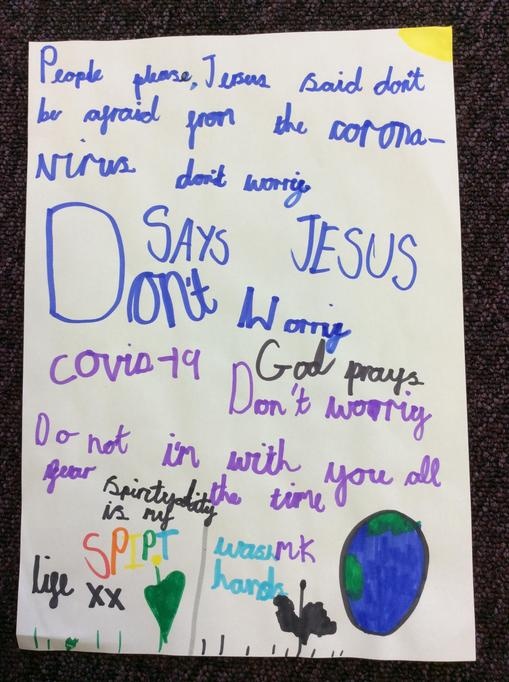 People please, Jersus said don't
be afraid from the corona-
Nirus don't worrig
SAYS JESUS
Don't Worrig
covid-19 God prays
Don't worrig
Do not i'm with you all
fear the time
spirityality
is my
SPIPT wash MK
life xx hands